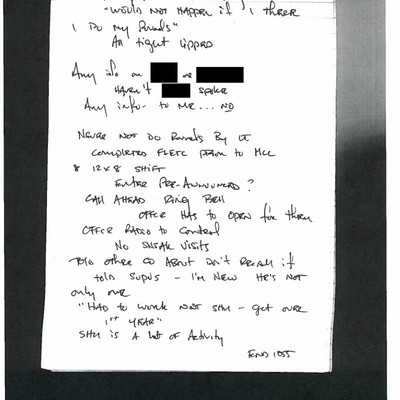 "WOULD NOT HAPPEN if I THERE
I Do My Rounds"
All tight lipped
Any info on or
HAVEN'T SPOKE
Any info to ME... NO
NEVER NOT DO Rounds By Lt
COMPLETED FLETC PRIOR to MCC
8 12x8 SHIFT
ENTER PRE-ANNOUNCED?
CALL AHEAD RING BELL
OFFCR HAS to OPEN for them
OFFCR RADIO to Control
NO SNEAK VISITS
TOLD other CO ABOUT DON'T RECALL if
told SUPVS - I'M NEW HE'S NOT
only one
"HAD to work SHU - get OVER
1ST YEAR"
SHU is A lot of Activity
END 1055